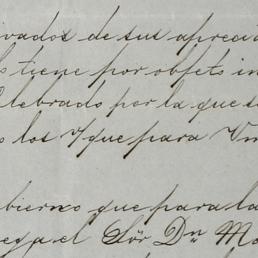 ivados de sus apreci
s tiene por objeto in
elebrado por la que s
s los y que para Vm
bierno que para la
ega el Sõr Dn Mo